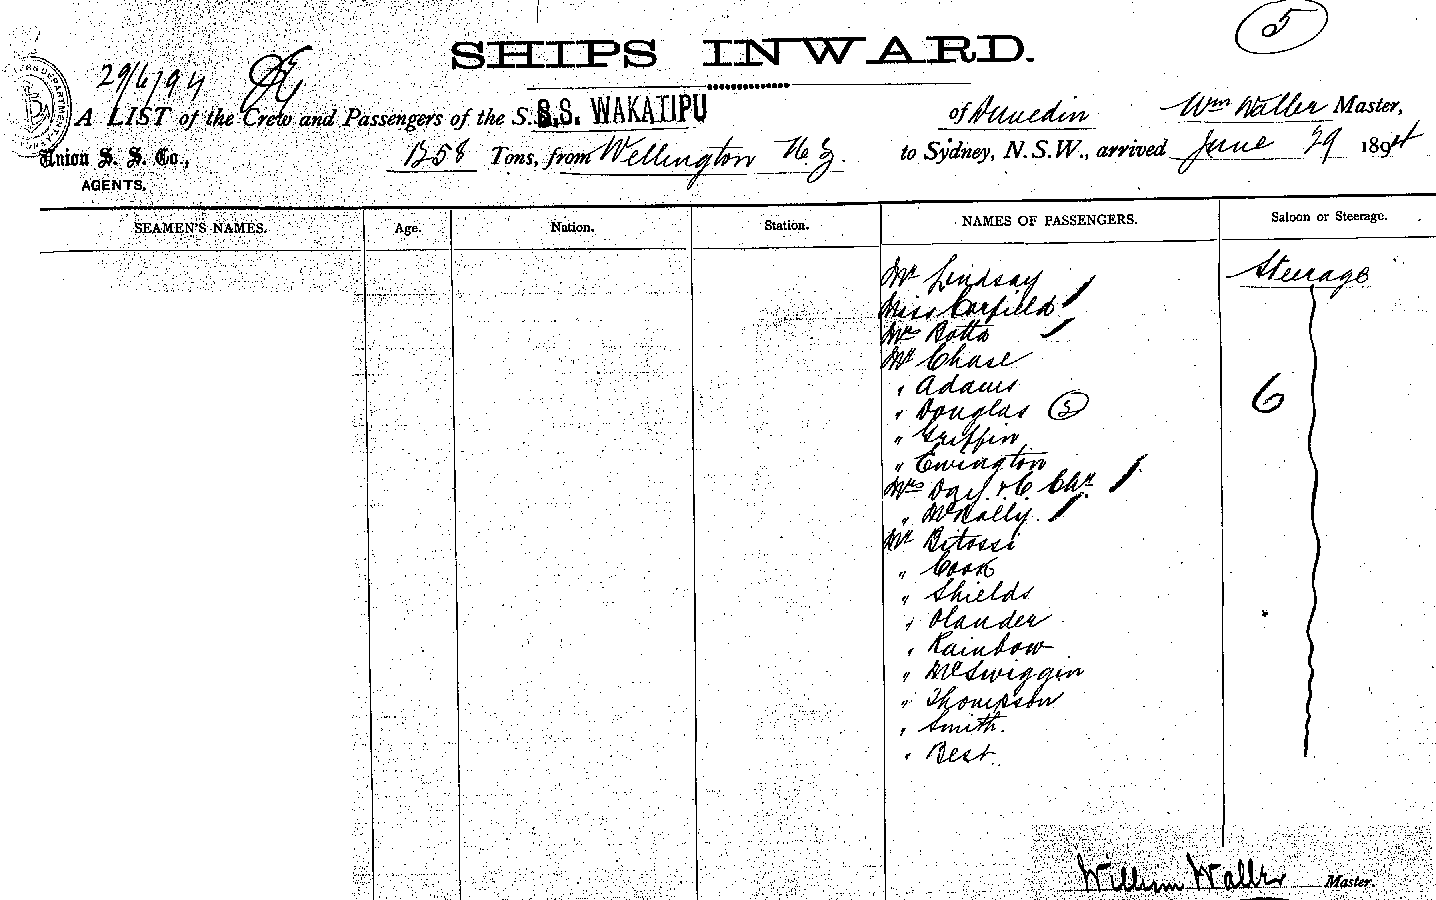 5
SHIPS INWARD.
29/6/94
A LIST of the Crew and Passengers of the S.S. S.S. WAKATIPU of Dunedin Wm Waller Master,
Union S. S. Co., 1258 Tons, from Wellington N Z. to Sydney, N.S.W., arrived June 29 1894
AGENTS.
SEAMEN'S NAMES. Age. Nation. Station. NAMES OF PASSENGERS. Saloon or Steerage.
Mr Lindsay Steerage
Miss Corfield
Mrs Botta
Mr Chase
" Adams
" Douglas 5 6
" Griffin
" Ewington
Mrs & Chr
" McNally.
Mr Bitossi
" Cook
" Shields
" Olander
" Rainbow
" McSwiggin
" Thompson
" Smith.
" Best.
William Waller Master.